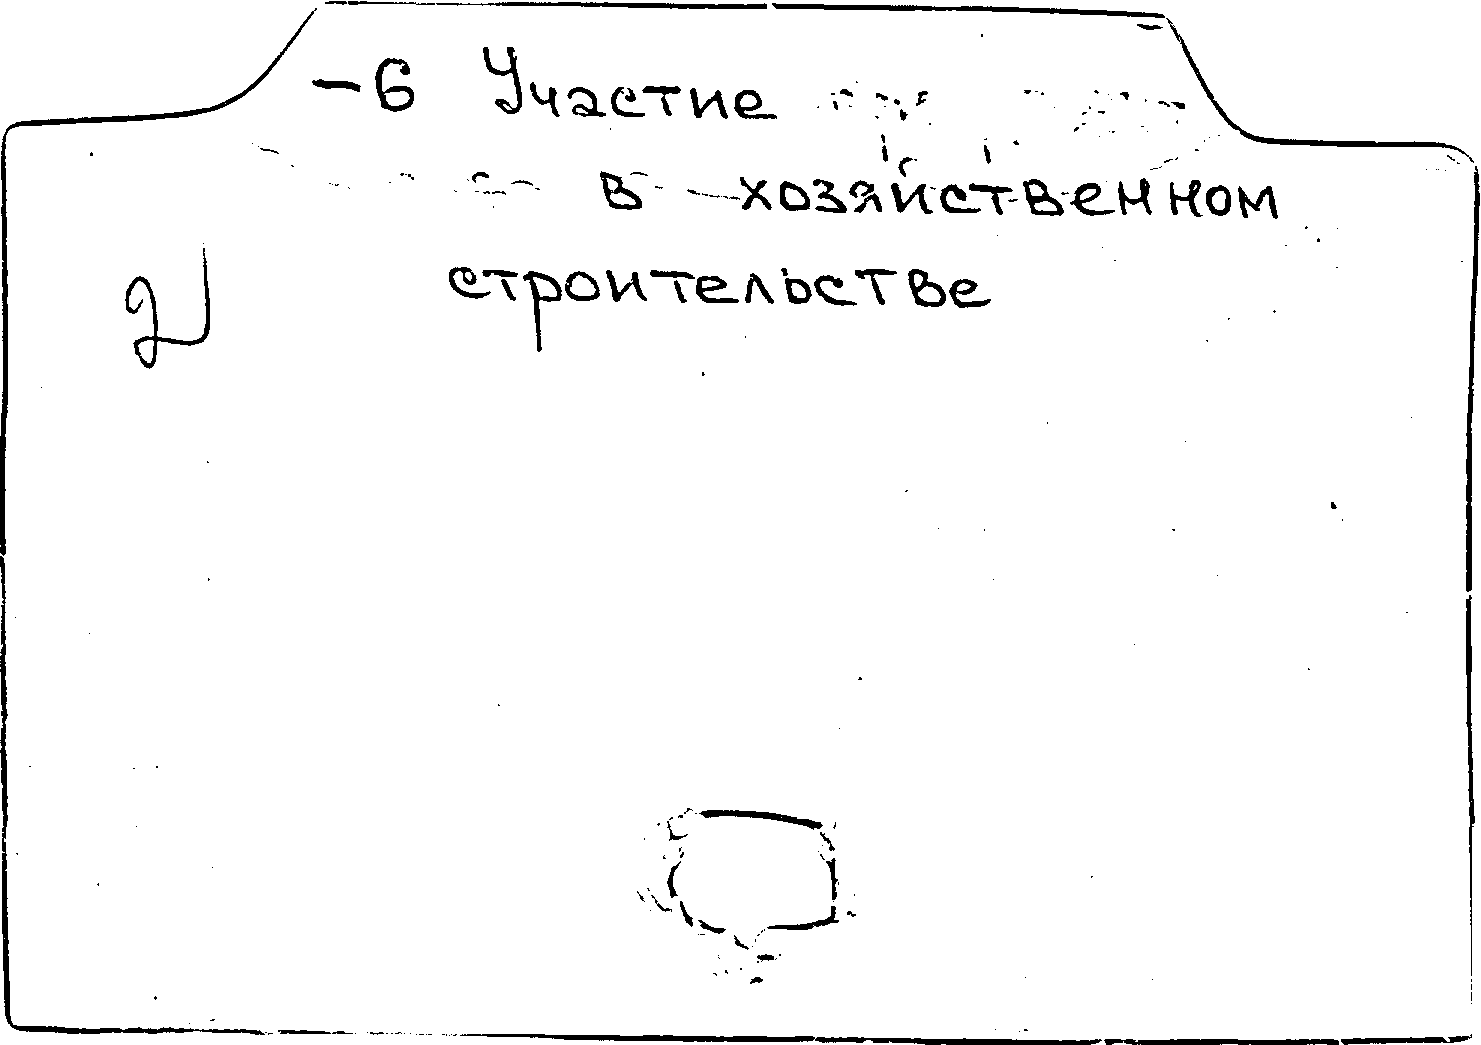 -6 Участие
в хозяйственном
строительстве